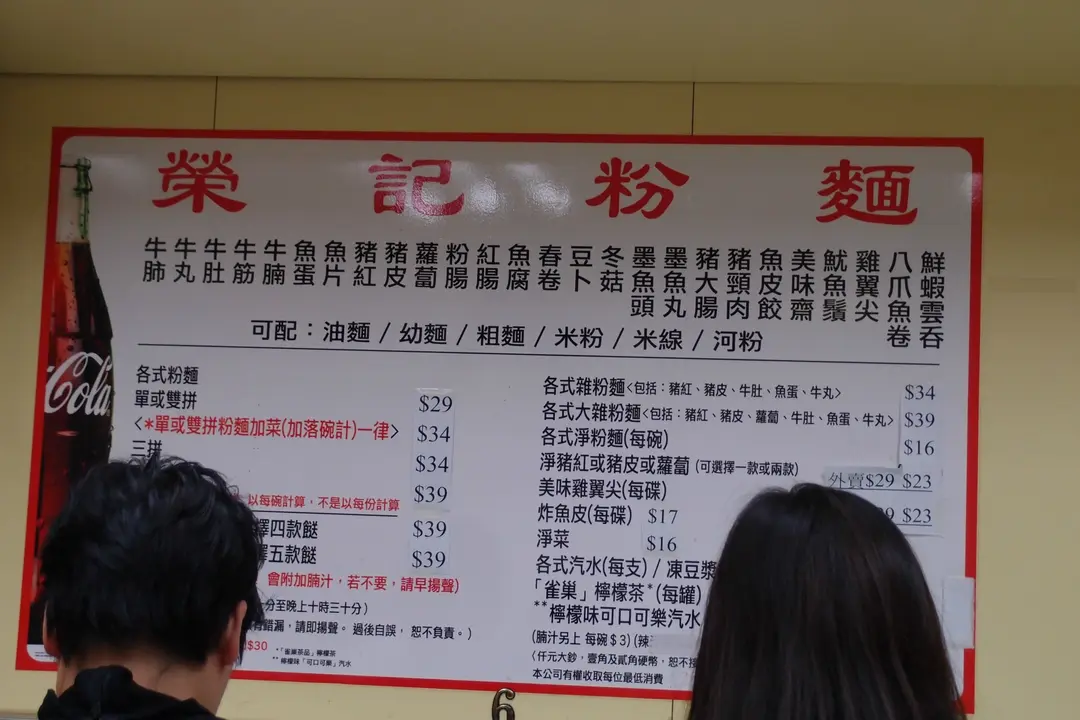 榮記粉麵
牛肺 牛丸 牛肚 牛筋 牛腩 魚蛋 魚片 豬紅 豬皮 蘿蔔 粉腸 紅腸 魚腐 春卷 豆卜 冬菇 墨魚頭 墨魚丸 豬大腸 豬頸肉 魚皮餃 美味齋 魷魚鬚 雞翼尖 八爪魚卷 鮮蝦雲吞
可配：油麵 / 幼麵 / 粗麵 / 米粉 / 米線 / 河粉
Cola
各式粉麵
單或雙拼 $29
<*單或雙拼粉麵加菜(加落碗計)一律> $34
三拼 $34
$39
以每碗計算，不是以每份計算
擇四款餸 $39
擇五款餸 $39
會附加腩汁，若不要，請早揚聲)
分至晚上十時三十分)
有錯漏，請即揚聲。過後自誤，恕不負責。)
$30 *「雀巢茶品」檸檬茶
**檸檬味「可口可樂」汽水
各式雜粉麵<包括：豬紅、豬皮、牛肚、魚蛋、牛丸> $34
各式大雜粉麵<包括：豬紅、豬皮、蘿蔔、牛肚、魚蛋、牛丸> $39
各式淨粉麵(每碗) $16
淨豬紅或豬皮或蘿蔔 (可選擇一款或兩款) 外賣$29 $23
美味雞翼尖(每碟) $23
炸魚皮(每碟) $17
淨菜 $16
各式汽水(每支) / 凍豆漿
「雀巢」檸檬茶*(每罐)
**檸檬味可口可樂汽水
(腩汁另上 每碗$3) (辣
(仟元大鈔，壹角及貳角硬幣，恕不接
本公司有權收取每位最低消費
6